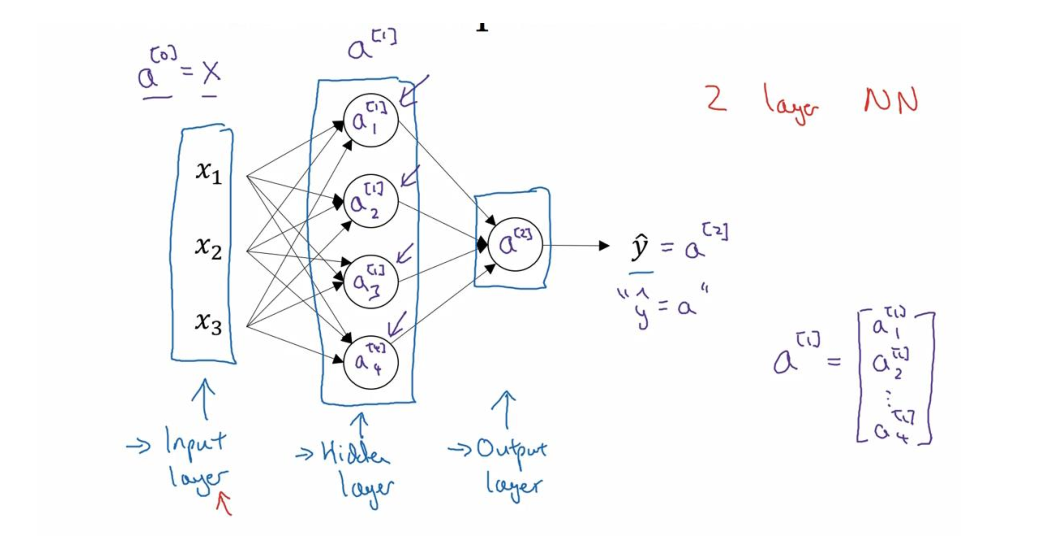 a^[1]
a^[0] = X
2 layer NN
x₁
x₂
x₃
a₁^[1]
a₂^[1]
a₃^[1]
a₄^[4]
a^[2]
ŷ = a^[2]
"ŷ = a"
a^[1] = [a₁^[1]
a₂^[1]
⋮
a₄^[1]]
→ Input
layer
→ Hidden
layer
→ Output
layer